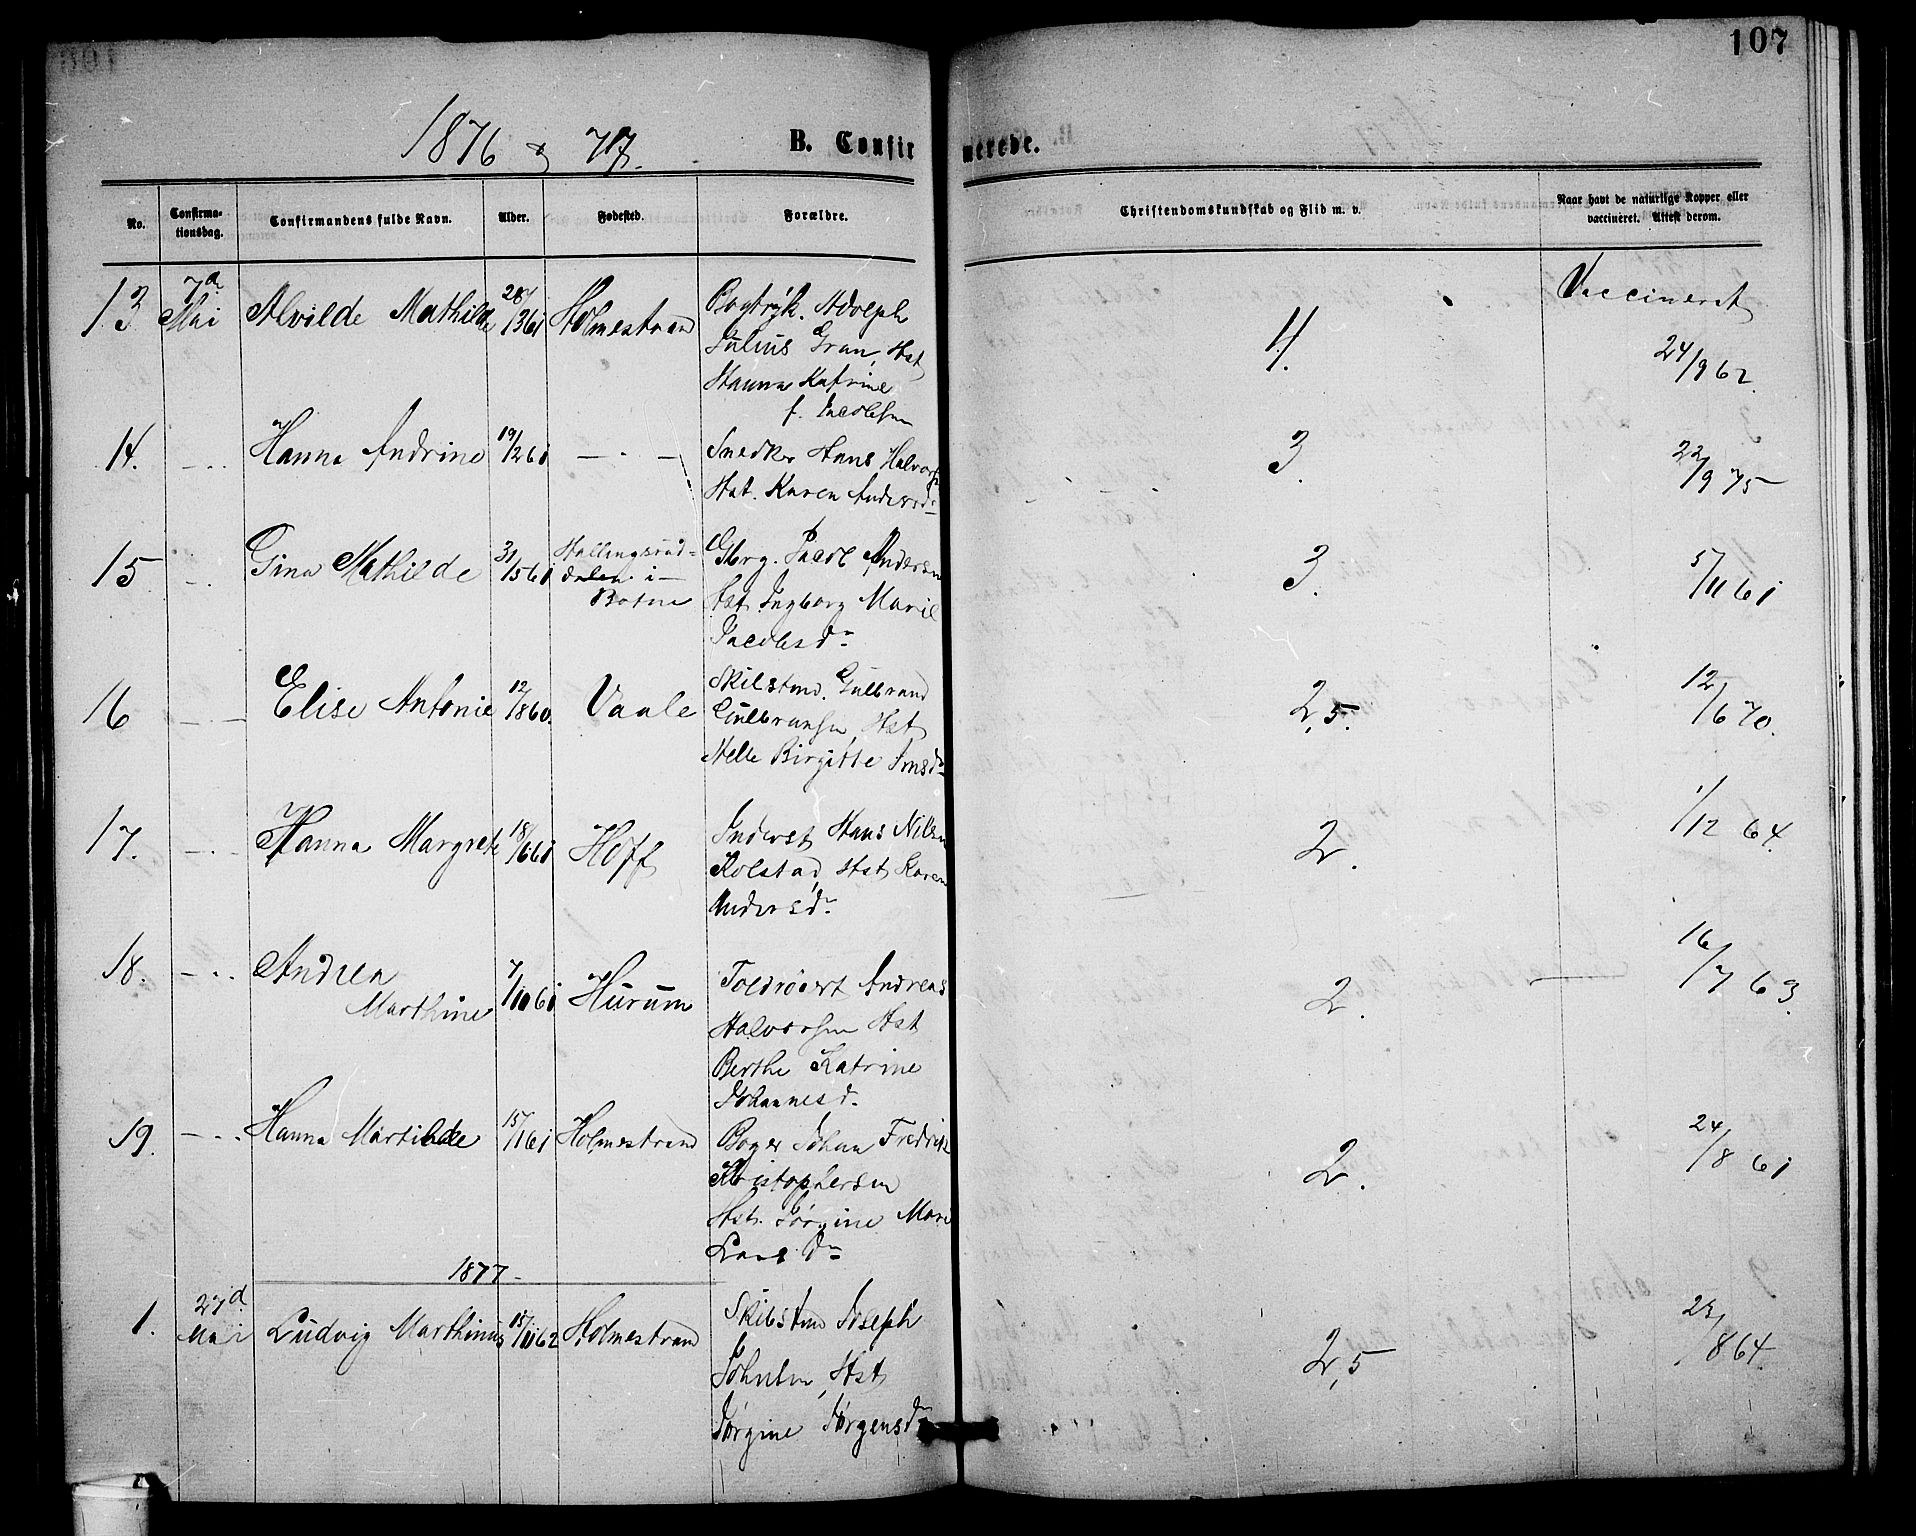 107
1876 & 77.
B. Confirmerede.
No.
Confirmationsdag.
Confirmandens fulde Navn.
Alder.
Fødested.
Forældre.
Christendomskundskab og Flid m. v.
Naar havt de naturlige Kopper eller
vaccineret. Attest derom.
13 7de Mai Alvilde Mathilde 28/3 61 Holmestrand
Bogtryk. Adolph
Julius Gran, Hst
Hanna Katrine
f. Jacobsen
4.
Vaccineret
24/9 62.
14. - Hanna Andrine 19/2 61 - . -
Snedker Hans Halvors
Hst. Karen Andersd.
3.
22/9 75
15 - Gina Mathilde 31/5 61
Hallingsrød-
dalen i
Botne
Gbrg. Jacob Andersen
Hst Ingborg Marie
Jacobsdr
3.
5/11 61
16 - Elise Antonie 12/8 60. Vaale
Skilstmd. Gulbrand
Gulbransen, Hst
Helle Birgitte
2,5.
12/6 70.
17. - Hanna Margrete 18/6 61 Hoff
Inderst Hans Nilsen
Kolstad, Hst Karen
Andersdr
2.
1/12 64.
18. - Andrea
Marthine 7/10 61 Hurum
Toldroert Andreas
Halvorsen Hst
Berthe Katrine
Johannesd.
2.
16/7 63.
19. - Hanna Martilde 15/1 61 Holmestrand
Bager Johan Fredrik
Kristophersen
Hst. Jørgine Mari
Larsdr
2.
24/8 61
1877
1. 27d Mai Ludvig Marthinus 15/11 62 Holmestrand
Skibstm Joseph
Johnsen, Hst
Jørgine Jørgensdr
2,5
23/8 64.